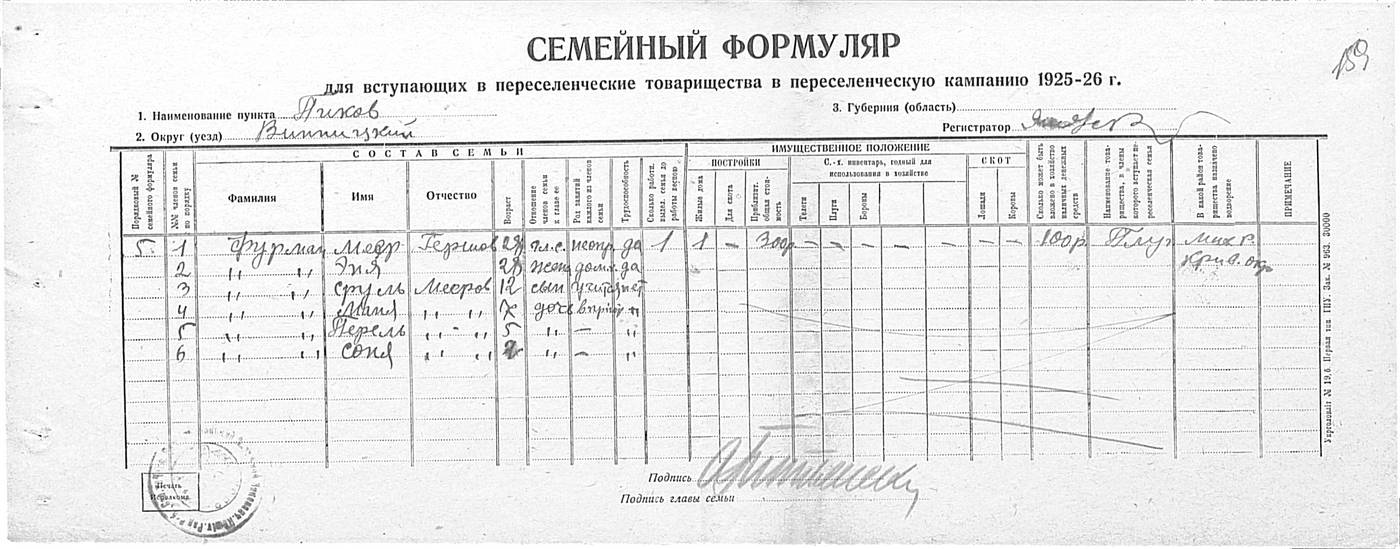 159
СЕМЕЙНЫЙ ФОРМУЛЯР
для вступающих в переселенческие товарищества в переселенческую кампанию 1925-26 г.
1. Наименование пункта Пиков
3. Губерния (область)
2. Округ (уезд) Винницкий
Регистратор
СОСТАВ СЕМЬИ
ИМУЩЕСТВЕННОЕ ПОЛОЖЕНИЕ
Порядковый № семейного формуляра
№№ членов семьи по порядку
Фамилия
Имя
Отчество
Возраст
Отношение членов семьи к главе ее
Род занятий каждого из членов семьи
Трудоспособность
Сколько работн. выдел. семья до работы весною
ПОСТРОЙКИ
Жилые дома
Для скота
Приблизит. общая стоимость
С.-х. инвентарь, годный для использования в хозяйстве
Телеги
Плуги
Бороны
СКОТ
Лошади
Коровы
Сколько может быть вложено в хозяйство наличных денежных средств
Наименование товарищества, в члены которого вступает переселенческая семья
В какой район товарищества назначено водворение
ПРИМЕЧАНИЕ
5. 1 Фурман Меер Гершов 28 гл.с. неопр. да 1 1 — 300р — — — — — — — 100р. Плуг
Крив. окр
2 " " Эня 28 жена домх. да
3 " " Сруль Мееров 12 сын нет
4 " " Маня " " 7 дочь "
5 " " Перель " " 5 " — "
6 " " Соня " " 2 " — "
Подпись
Подпись главы семьи
Печать Исполкома.
Укрголовліт № 19,б. Первая тип ГПУ. Зак. № 963. 30000